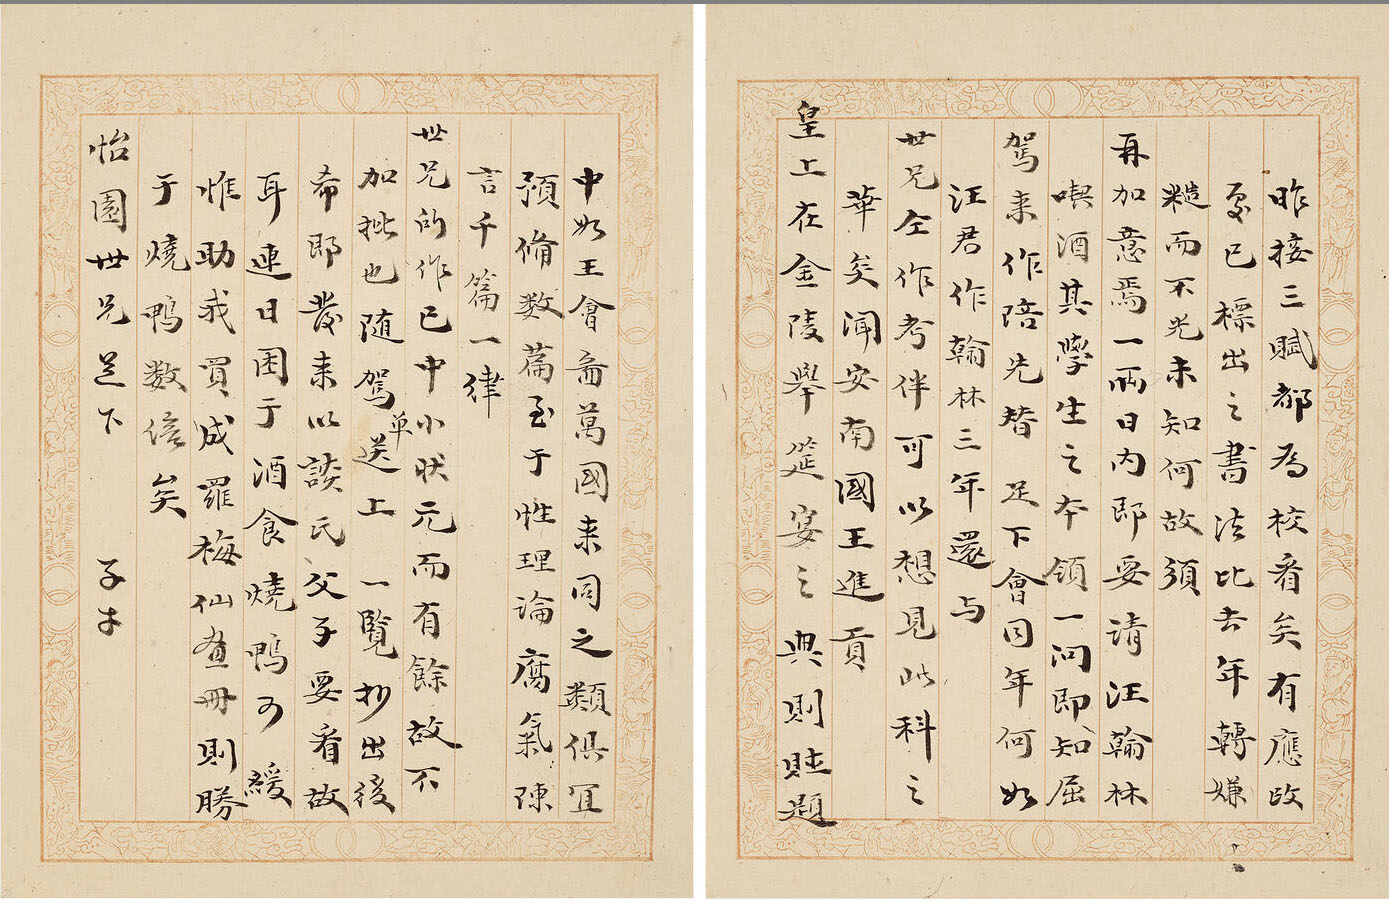 昨接三賦都為校看矣有應改
處已標出之書法比去年轉嫌
糙而不光未知何故須
再加意焉一兩日內即要請汪翰林
喫酒其學生之本領一问即知屈
駕来作陪先替足下會同年何如
汪君作翰林三年還与
世兄仝作考伴可以想見此科之
華矣闻安南國王進貢
皇上在金陵舉筵宴之典則賦題
中如王會啚萬國来同之類俱宜
預俻数篇至于性理論腐氣陳
言千篇一律
世兄所作已中小状元而有餘故不
加批也随駕单送上一覧抄出後
希即發来以談氏父子要看故
耳連日困于酒食燒鴨可緩
惟助我買成羅梅仙畫冊則勝
于燒鴨数倍矣
怡園世兄足下 子才